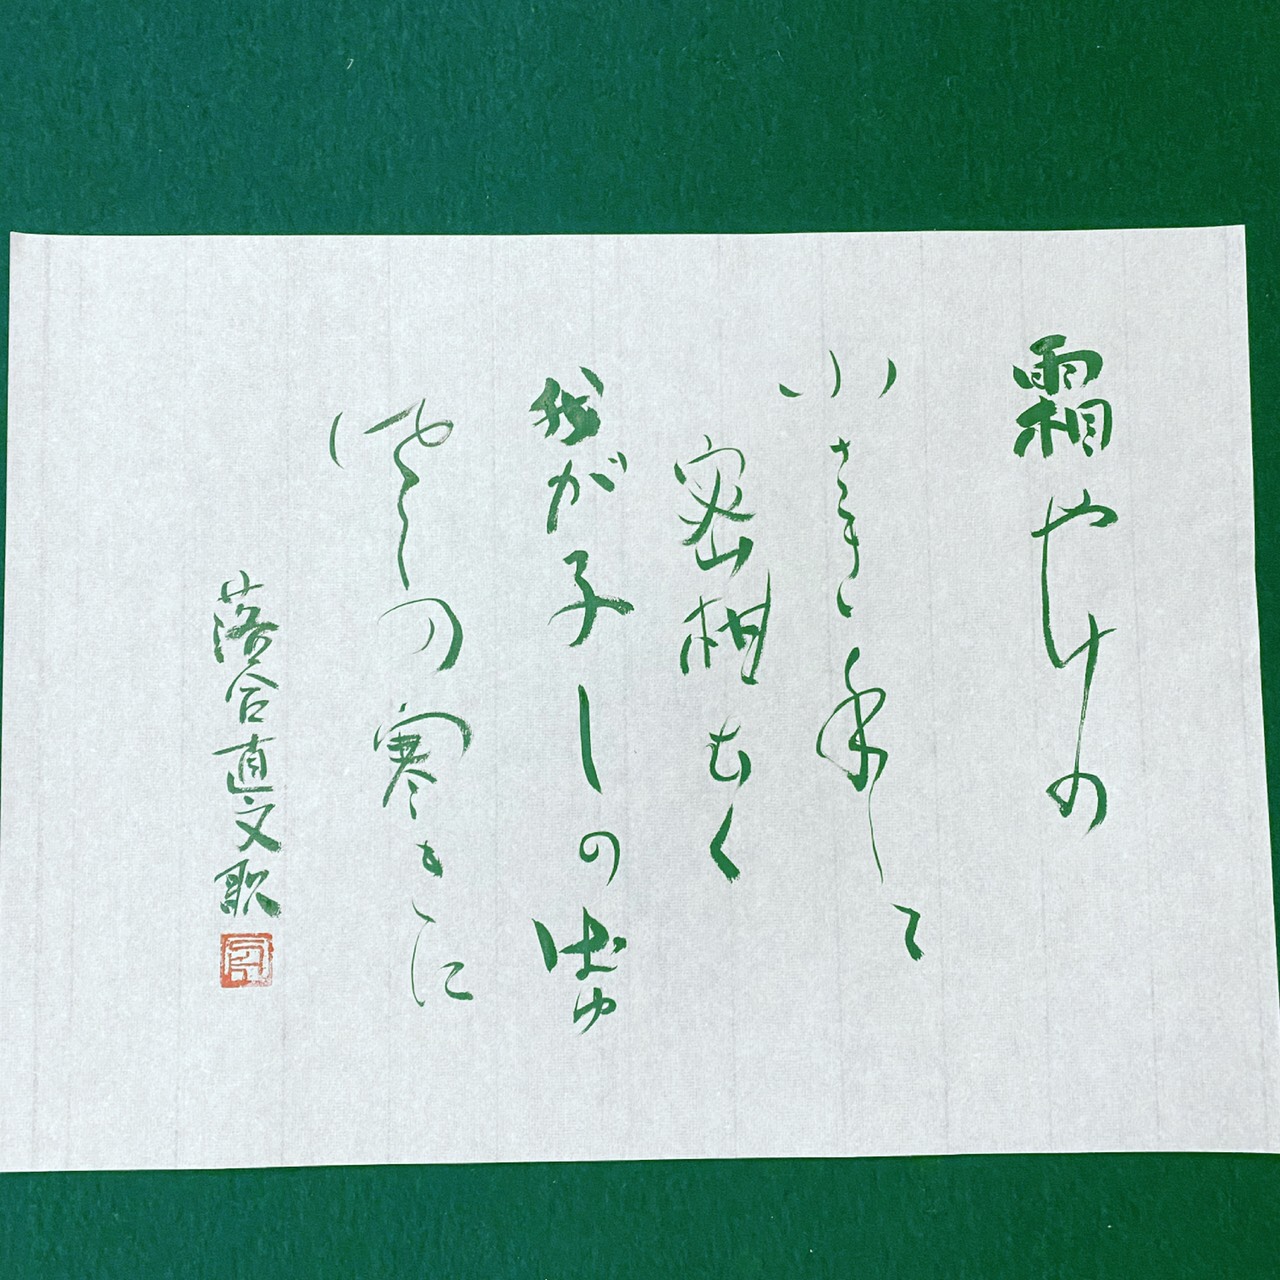 霜やけの
小さき手して
密柑むく
我が子しのばゆ
風の寒きに
落合直文歌